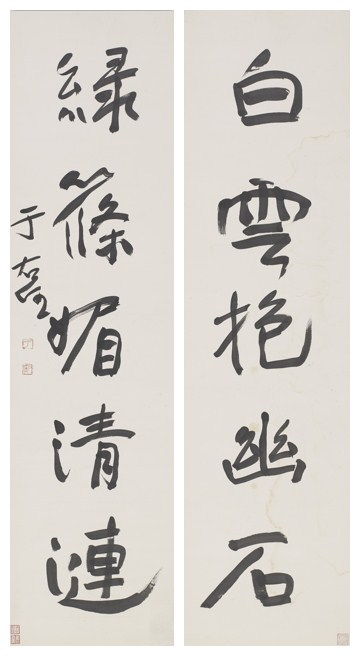 白雲抱幽石
綠篠媚清漣
于右任